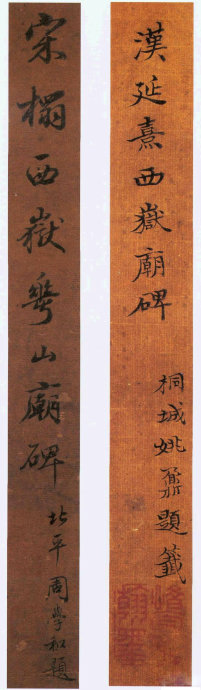 漢延熹西嶽廟碑
桐城姚鼐題籤
宋榻西嶽華山廟碑
北平周學題